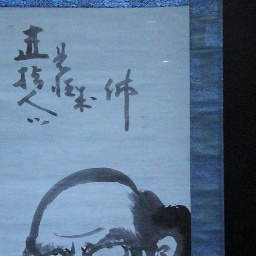 直指人心
見性成
佛